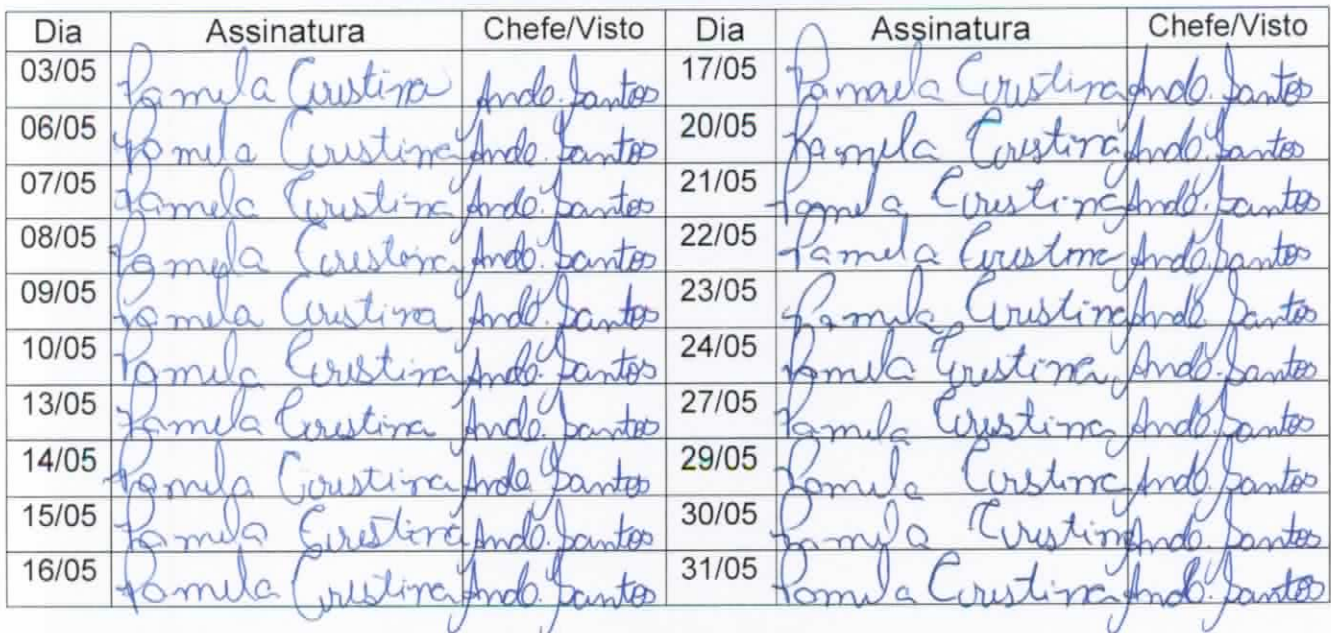 Dia Assinatura Chefe/Visto Dia Assinatura Chefe/Visto
03/05 Pamela Cristina Ando. Santos 17/05 Pamela Cristina Ando. Santos
06/05 Pamela Cristina Ando. Santos 20/05 Pamela Cristina Ando. Santos
07/05 Pamela Cristina Ando. Santos 21/05 Pamela Cristina Ando. Santos
08/05 Pamela Cristina Ando. Santos 22/05 Pamela Cristina Ando. Santos
09/05 Pamela Cristina Ando. Santos 23/05 Pamela Cristina Ando. Santos
10/05 Pamela Cristina Ando. Santos 24/05 Pamela Cristina Ando. Santos
13/05 Pamela Cristina Ando. Santos 27/05 Pamela Cristina Ando. Santos
14/05 Pamela Cristina Ando. Santos 29/05 Pamela Cristina Ando. Santos
15/05 Pamela Cristina Ando. Santos 30/05 Pamela Cristina Ando. Santos
16/05 Pamela Cristina Ando. Santos 31/05 Pamela Cristina Ando. Santos